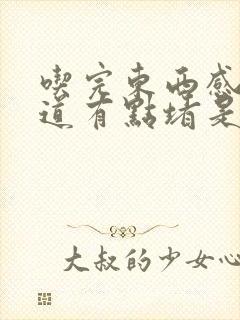 喫完東西感
道有點堵是
大叔的少女心